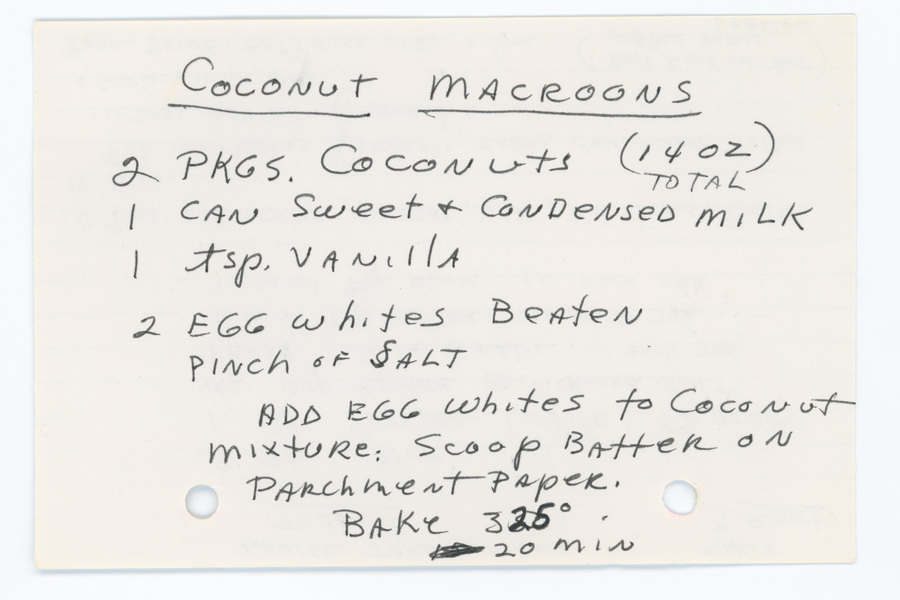 COCONUT MACROONS
2 PKGS. COCONUTS (14 OZ)
TOTAL
1 CAN Sweet & CONDENSED MILK
1 tsp. VANIllA
2 EGG whites BEATEN
PINCH OF SALT
ADD EGG whites to COCONUT
MIXTURE. Scoop BATTER ON
PARchmENT PAPER.
BAKE 325° .
20 MIN